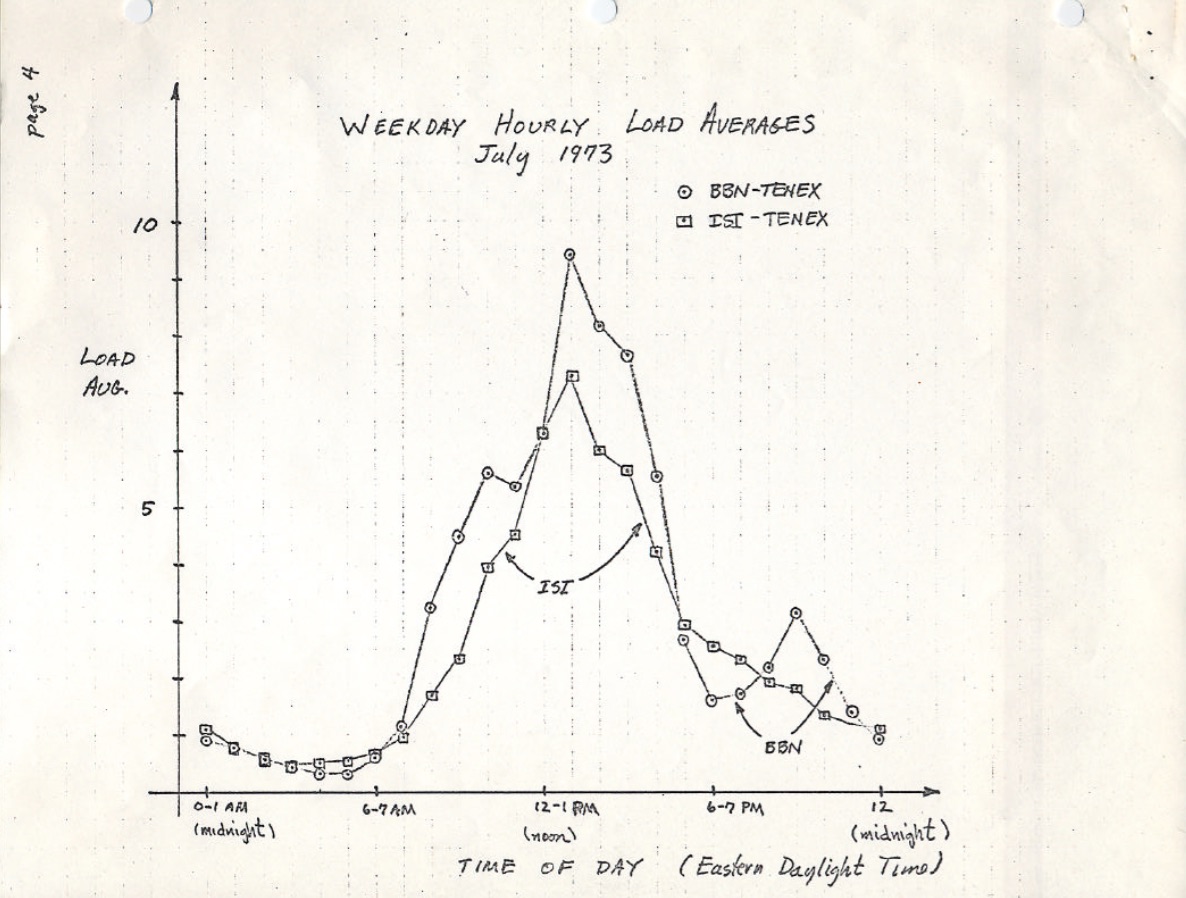 page 4
WEEKDAY HOURLY LOAD AVERAGES
July 1973
BBN-TENEX
ISI-TENEX
10
LOAD
AVG.
5
ISI
BBN
0-1 AM
(midnight)
6-7 AM
12-1 PM
(noon)
6-7 PM
12
(midnight)
TIME OF DAY (Eastern Daylight Time)